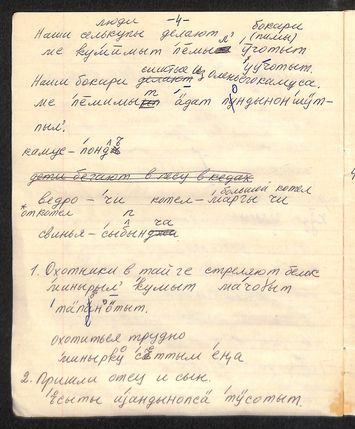 люди -4- бокари
Наши селькупы делают (пимы)
ме кумӣмыт пе̄мы ӱ̄готыт
сшитые из ӱӱготыт.
Наши бокари делают оленьего камуса.
ме пе̄мимыт ӓ̄дат пондынон шӱт-
пыл'.
камус – понд
дети бегают в лесу в кедах
большой котел
ведро – чи котел – марғы чи
*от котел
свинья – сыбынча
1. Охотники в тайге стреляют белк
шинырыл' кумыт мачоғыт
тапанотыт.
охотиться трудно
шинырқо сеттым еңа
2. Пришли отец и сын.
Есыты иандынопсӓ тӱсотыт.